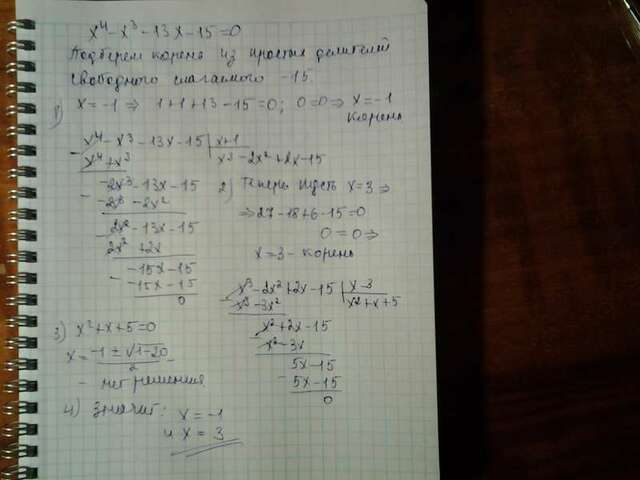 x⁴-x³-13x-15=0
Подберем корень из простых делителей
свободного слагаемого -15
1) x=-1 ⇒ 1+1+13-15=0; 0=0 ⇒ x=-1
корень
x⁴-x³-13x-15 | x+1
x⁴+x³ x³-2x²+2x-15
-2x³-13x-15
-2x³-2x²
2x²-13x-15
2x²+2x
-15x-15
-15x-15
0
2) Теперь пусть x=3 ⇒
⇒ 27-18+6-15=0
0=0 ⇒
x=3 - корень
x³-2x²+2x-15 | x-3
x³-3x² x²+x+5
x²+2x-15
x²-3x
5x-15
5x-15
0
3) x²+x+5=0
x=-1±√1-20
2
- нет решения
4) Значит: x=-1
и x=3